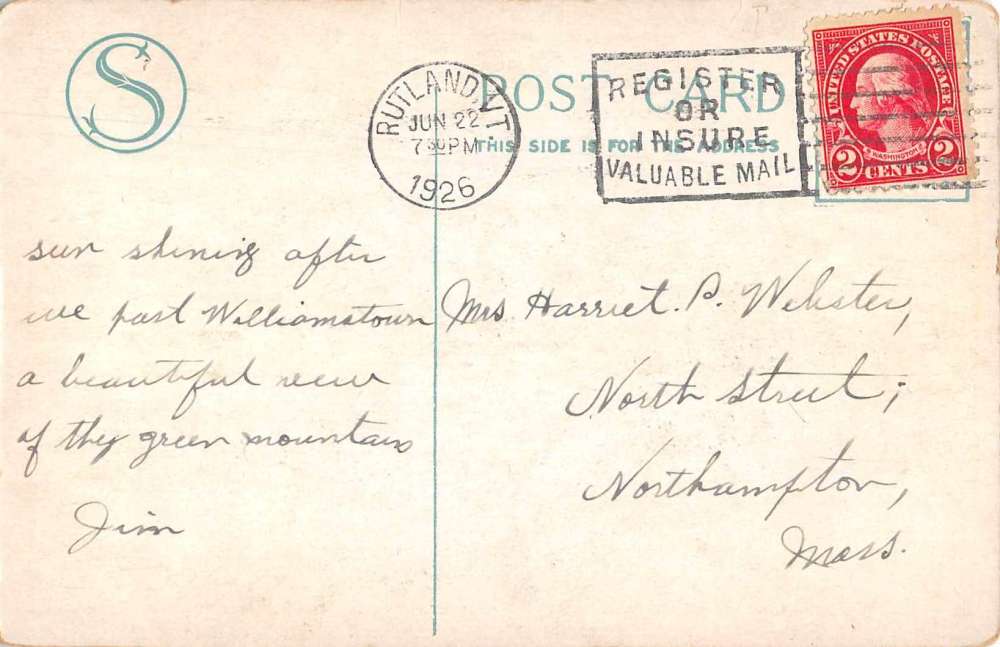 S
POST CARD
THIS SIDE IS FOR THE ADDRESS
RUTLAND, VT.
JUN 22
7 30 PM
1926
REGISTER
OR
INSURE
VALUABLE MAIL
UNITED STATES POSTAGE
WASHINGTON
2 CENTS 2
sun shining after
we past Williamstown
a beautiful view
of the green mountains
Jim
Mrs Harriet. P. Webster,
North Street,
Northampton,
Mass.